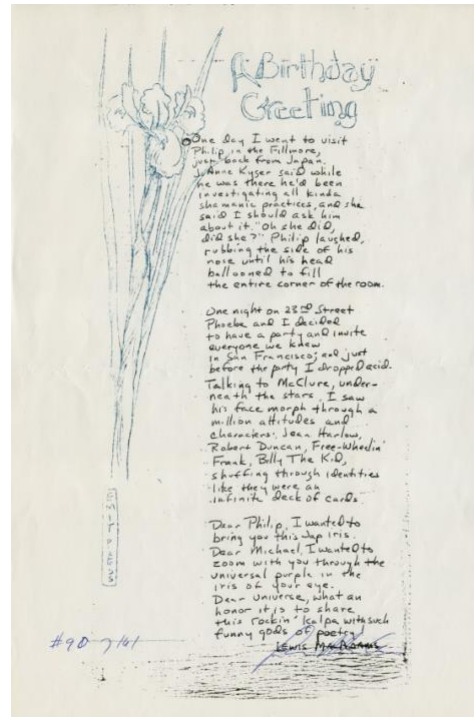 A Birthday
Greeting
One day I went to visit
Philip in the Fillmore,
just back from Japan.
JoAnne Kyger said while
he was there he'd been
investigating all kinda
shamanic practices, and she
said I should ask him
about it. "Oh she did,
did she?" Philip laughed,
rubbing the side of his
nose until his head
ballooned to fill
the entire corner of the room.
One night on 23rd Street
Phoebe and I decided
to have a party and invite
everyone we knew
in San Francisco; and just
before the party I dropped acid.
Talking to McClure, under-
neath the stars, I saw
his face morph through a
million attitudes and
characters: Jean Harlow,
Robert Duncan, Free-Wheelin'
Frank, Billy The Kid,
shuffling through identities
like they were an
infinite deck of cards.
Dear Philip, I wanted to
bring you this Jap iris.
Dear Michael, I wanted to
zoom with you through the
universal purple in the
iris of your eye.
Dear Universe, what an
honor it is to share
this rockin' kalpa with such
funny gods of poetry.
Lewis MacAdams
#90